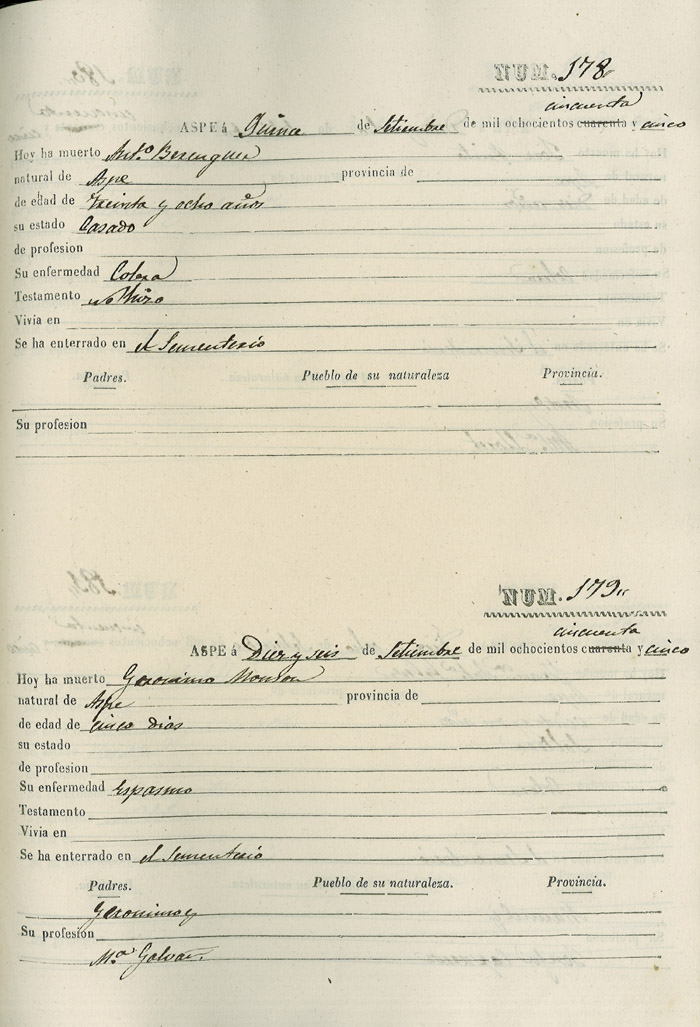 NUM. 178
cincuenta
ASPE á Quince de Setiembre de mil ochocientos cuarenta y cinco
Hoy ha muerto Ant.º Berenguer
natural de Aspe provincia de
de edad de Treinta y ocho años
su estado Casado
de profesion
Su enfermedad Colera
Testamento no hizo
Vivia en
Se ha enterrado en el Sementerio
Padres. Pueblo de su naturaleza Provincia.
Su profesion
NUM. 179
cincuenta
ASPE á Diez y seis de Setiembre de mil ochocientos cuarenta y cinco
Hoy ha muerto Geronimo Monzon
natural de Aspe provincia de
de edad de cinco dias
su estado
de profesion
Su enfermedad Espasmo
Testamento
Vivia en
Se ha enterrado en el Sementerio
Padres. Pueblo de su naturaleza. Provincia.
Geronimo y
Su profesion
M.ª Galvañ